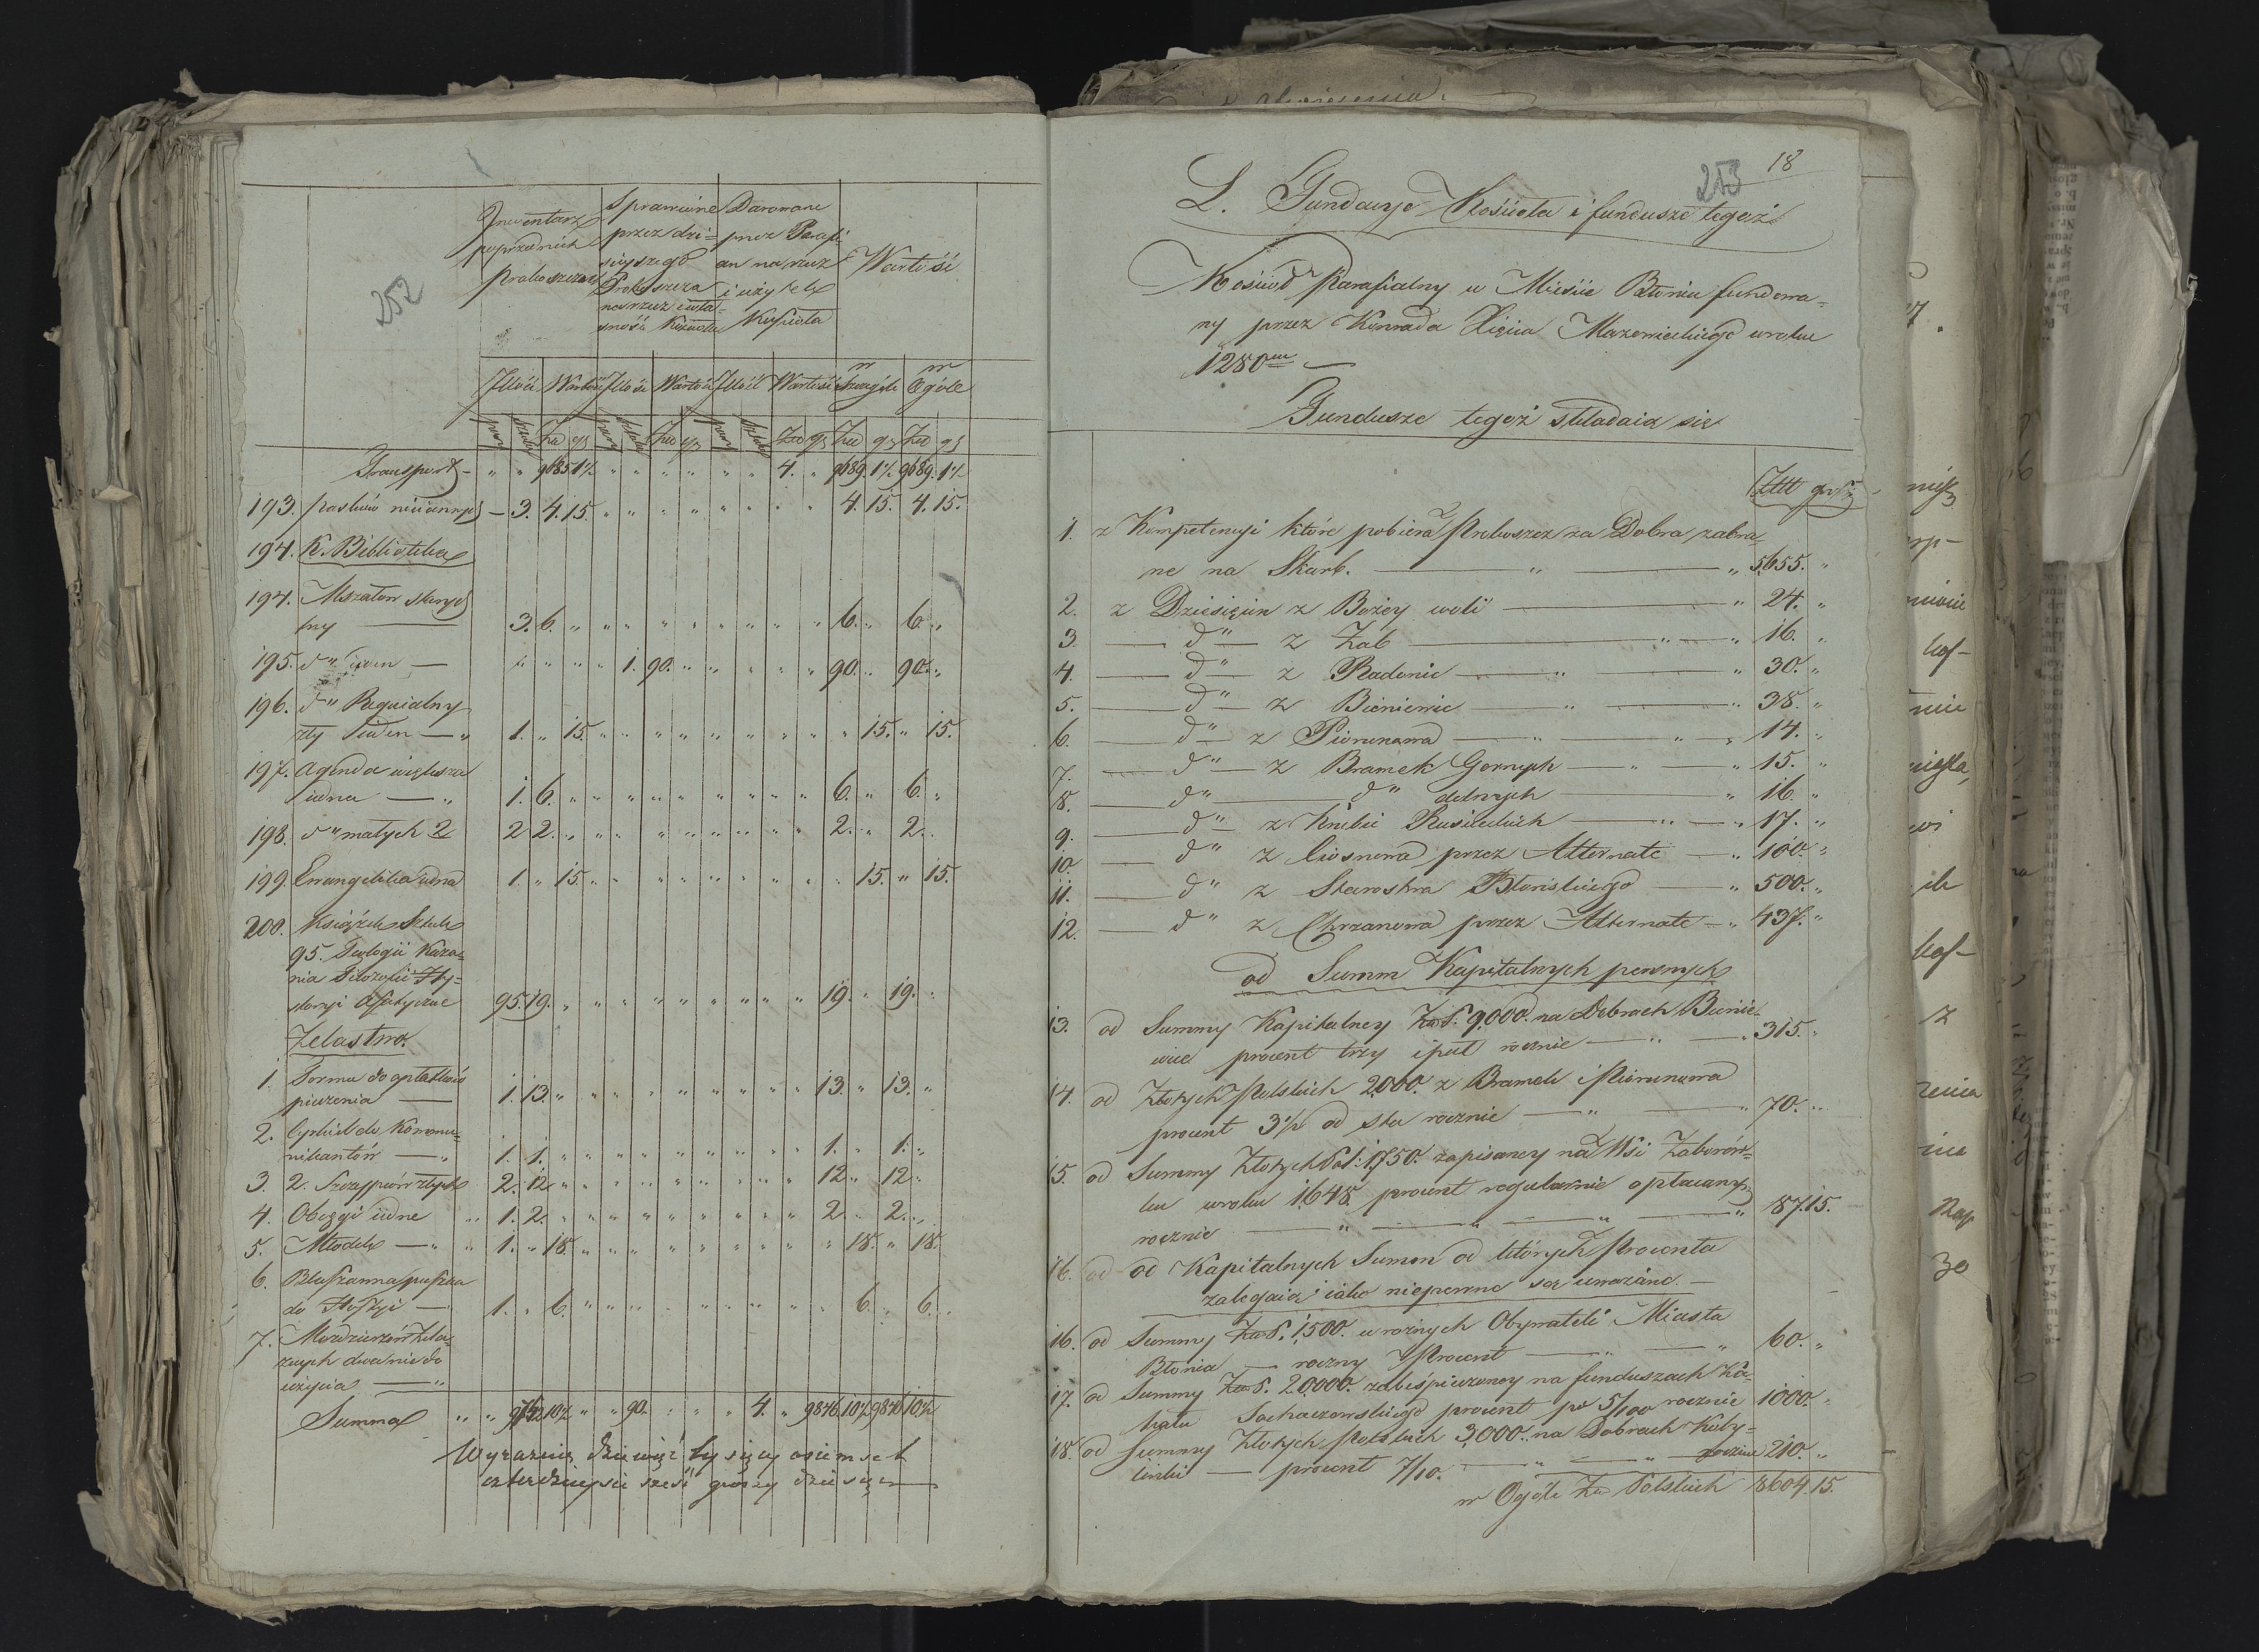 252
Inwentarz
poprzednich
Proboszczów
Sprawione
przez dzi=
sieyszego
Proboszcza
na rzecz i wła-
sność Kościoła
Darowane
przez Parafi-
an na rzecz
i użytek
Kościoła
Wartość
Ilość Wartość Ilość Wartość Ilość Wartość w Szczególe w Ogóle
pary sztuki Złо gr pary sztuki Złо gr pary sztuki Złо gr Złо gr Złо gr
Transport - " " 9685 1½ " " " " " " 4. " 9689. 1½ 9689. 1½
193. pasków nicianych — 3. 4. 15. " " " " " " " " 4. 15. 4. 15.
194. K. Biblioteka
194. Mszałów starych
try — 3. 6. " " " " " " " " " 6. " 6. "
195. d° ieden — " " " " 1. 90. " " " " " " 90. " 90. "
196. d° Requialny
zły ieden — " 1. " 15. " " " " " " " " " 15. " 15.
197. Agenda większa
iedna — " 1. 6. " " " " " " " " " 6. " 6. "
198. d° małych 2 2 2. " " " " " " " " " 2. " 2. "
199. Ewangelia iedna 1. " 15. " " " " " " " " " 15. " 15.
200. Książek Sztuk
95. Teologii Kaza-
nia Filozofii Hy-
storyi Ascetyczne 95. 19. " " " " " " " " " 19. " 19. "
Żelastwo.
1. Forma do opłatków
pieczenia — 1. 13. " " " " " " " " " 13. " 13. "
2. Cyrkiel do Kommu-
nikantów — " 1. 1. " " " " " " " " " 1. " 1. "
3. 2. Szczypców złych 2. 12 " " " " " " " " " 12 " 12 "
4. Obcęgi iedne " 1. 2. " " " " " " " " " 2. " 2. "
5. Młotek — " " 1. " 18. " " " " " " " " " 18. " 18.
6. Blaszanna puszka
do Hostyi — 1. " 6. " " " " " " " " " 6. " 6.
7. Moździerzów Żela-
znych dwa nie do
użycia — "
Summa " " 9752 10½ " " 90. " " " 4. " 9846 10½ 9846 10½
Wyraźnie dziewięć tysięcy ośmset
czterdzieści sześć groszy dziesięć
18
253
L. Fundacye Kościoła i fundusze tegoż
Kościół Parafialny w Mieście Błoniu fundowa=
ny przez Konrada Xięcia Mazowieckiego w roku
1280m —
Fundusze tegoż składaią się
Złł grszy
1. z Kompetencyi które pobiera Proboszcz za Dobra zabra-
ne na Skarb. — " — " 5655. "
2. z Dziesięcin z Bożey woli — " 24. "
3. — d° — z Żab — " — " 16. "
4. — d° — z Radonic — " — " 30. "
5. — d° — z Bieniewic — " — " 38. "
6. — d° — z Piorunowa — " — " 14. "
7. — d° — z Bramek Gornych — " — " 15. "
8. — d° — d° dolnych — " 16. "
9. — d° — z Kni Rusieckich — " — " 17. "
10. — d° z Ciosnowa przez Alternate — " 100. "
11. — d° z Starostwa Błońskiego — " 500. "
12. — d° z Chrzanowa przez Alternate — " 437. "
od Summ Kapitalnych pewnych
13. od Summy Kapitalney Złо P. 9000. na Dobrach Bienie-
wice procent trzy i puł rocznie — " — " 315. "
14. od Złotych Polskich 2000. z Bramek i Piorunowa
procent 3½ od sta rocznie — " — " 70. "
15. od Summy Złotych Pol: 1750. zapisaney na Wsi Zaborów-
ku w roku 1648 procent regularnie opłacany
rocznie — " — " — " — " 87. 15.
16. od od Kapitalnych Summ od których Procenta
zalegaią iako niepewne są uważane. —
16. od Summy Złо P. 1500. u roznych Obywateli Miasta
Błonia — roczny Procent — " — " 60. "
17. od Summy Złо P. 20000. zabeśpieczoney na funduszach Ka-
hału Sochaczewskiego procent po 5/100 rocznie 1000. "
18. od Summy Złotych Polskich 3000. na Dobrach Koby-
linki — procent 7/10. — " — " rocznie 210. "
w Ogóle Złо Polskich 8604 15.